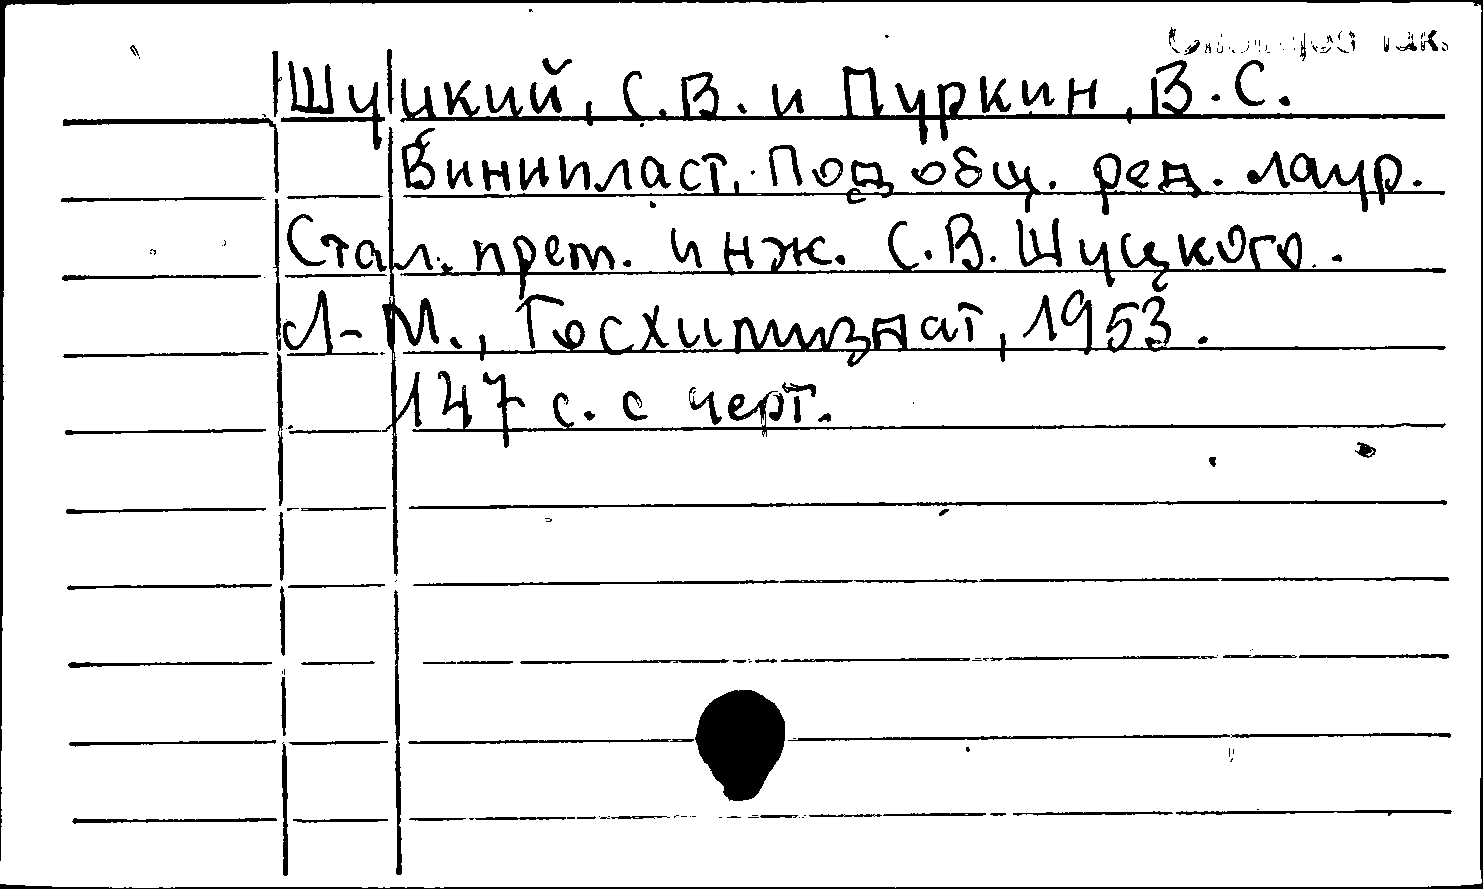 Шуцкий, С.В. и Пуркин, В.С.
Винипласт. Под общ. ред. лаур.
Стал. прем. инж. С.В. Шуцкого.
Л-М., Госхимиздат, 1953.
147 с. с черт.